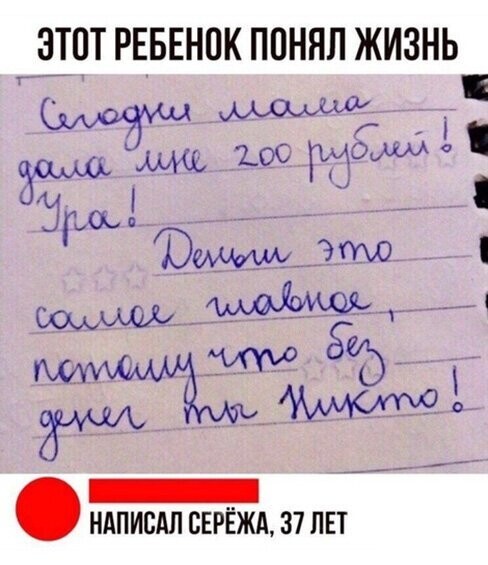 ЭТОТ РЕБЕНОК ПОНЯЛ ЖИЗНЬ
Сегодня мама
дала мне 200 рублей!
Ура!
Деньги это
самое главное,
потому что без
денег ты Никто!
НАПИСАЛ СЕРЁЖА, 37 ЛЕТ